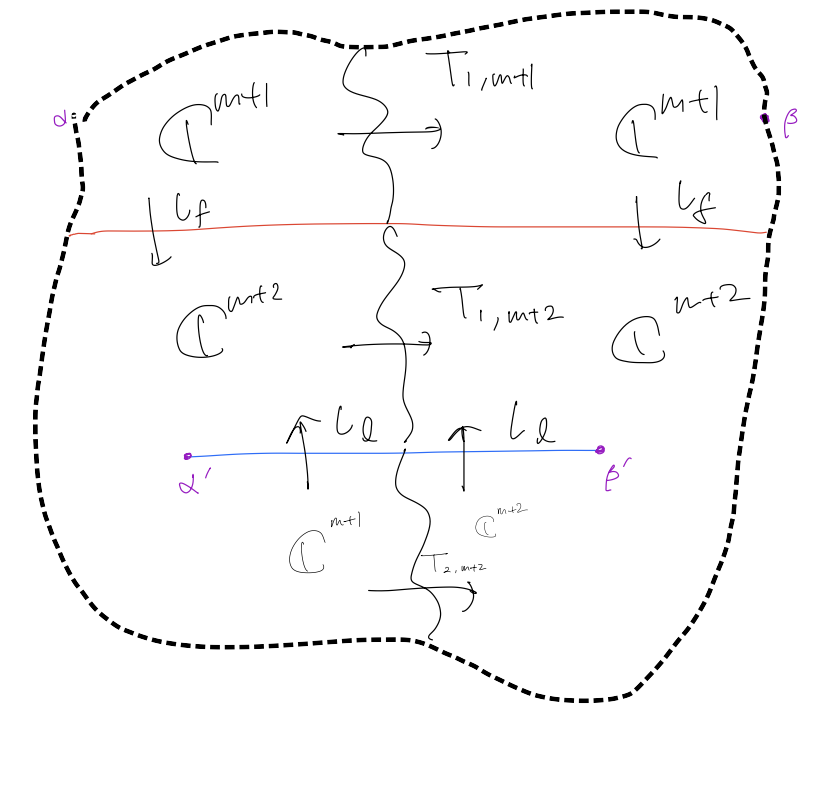 T₁,ₘ₊₁
α ℂᵐ⁺¹ ℂᵐ⁺¹ β
ι_f ι_f
ℂᵐ⁺² T₁,ₘ₊₂ ℂᵐ⁺²
ι_ℓ ι_ℓ
α′ β′
ℂᵐ⁺¹ ℂᵐ⁺²
T₂,ₘ₊₂